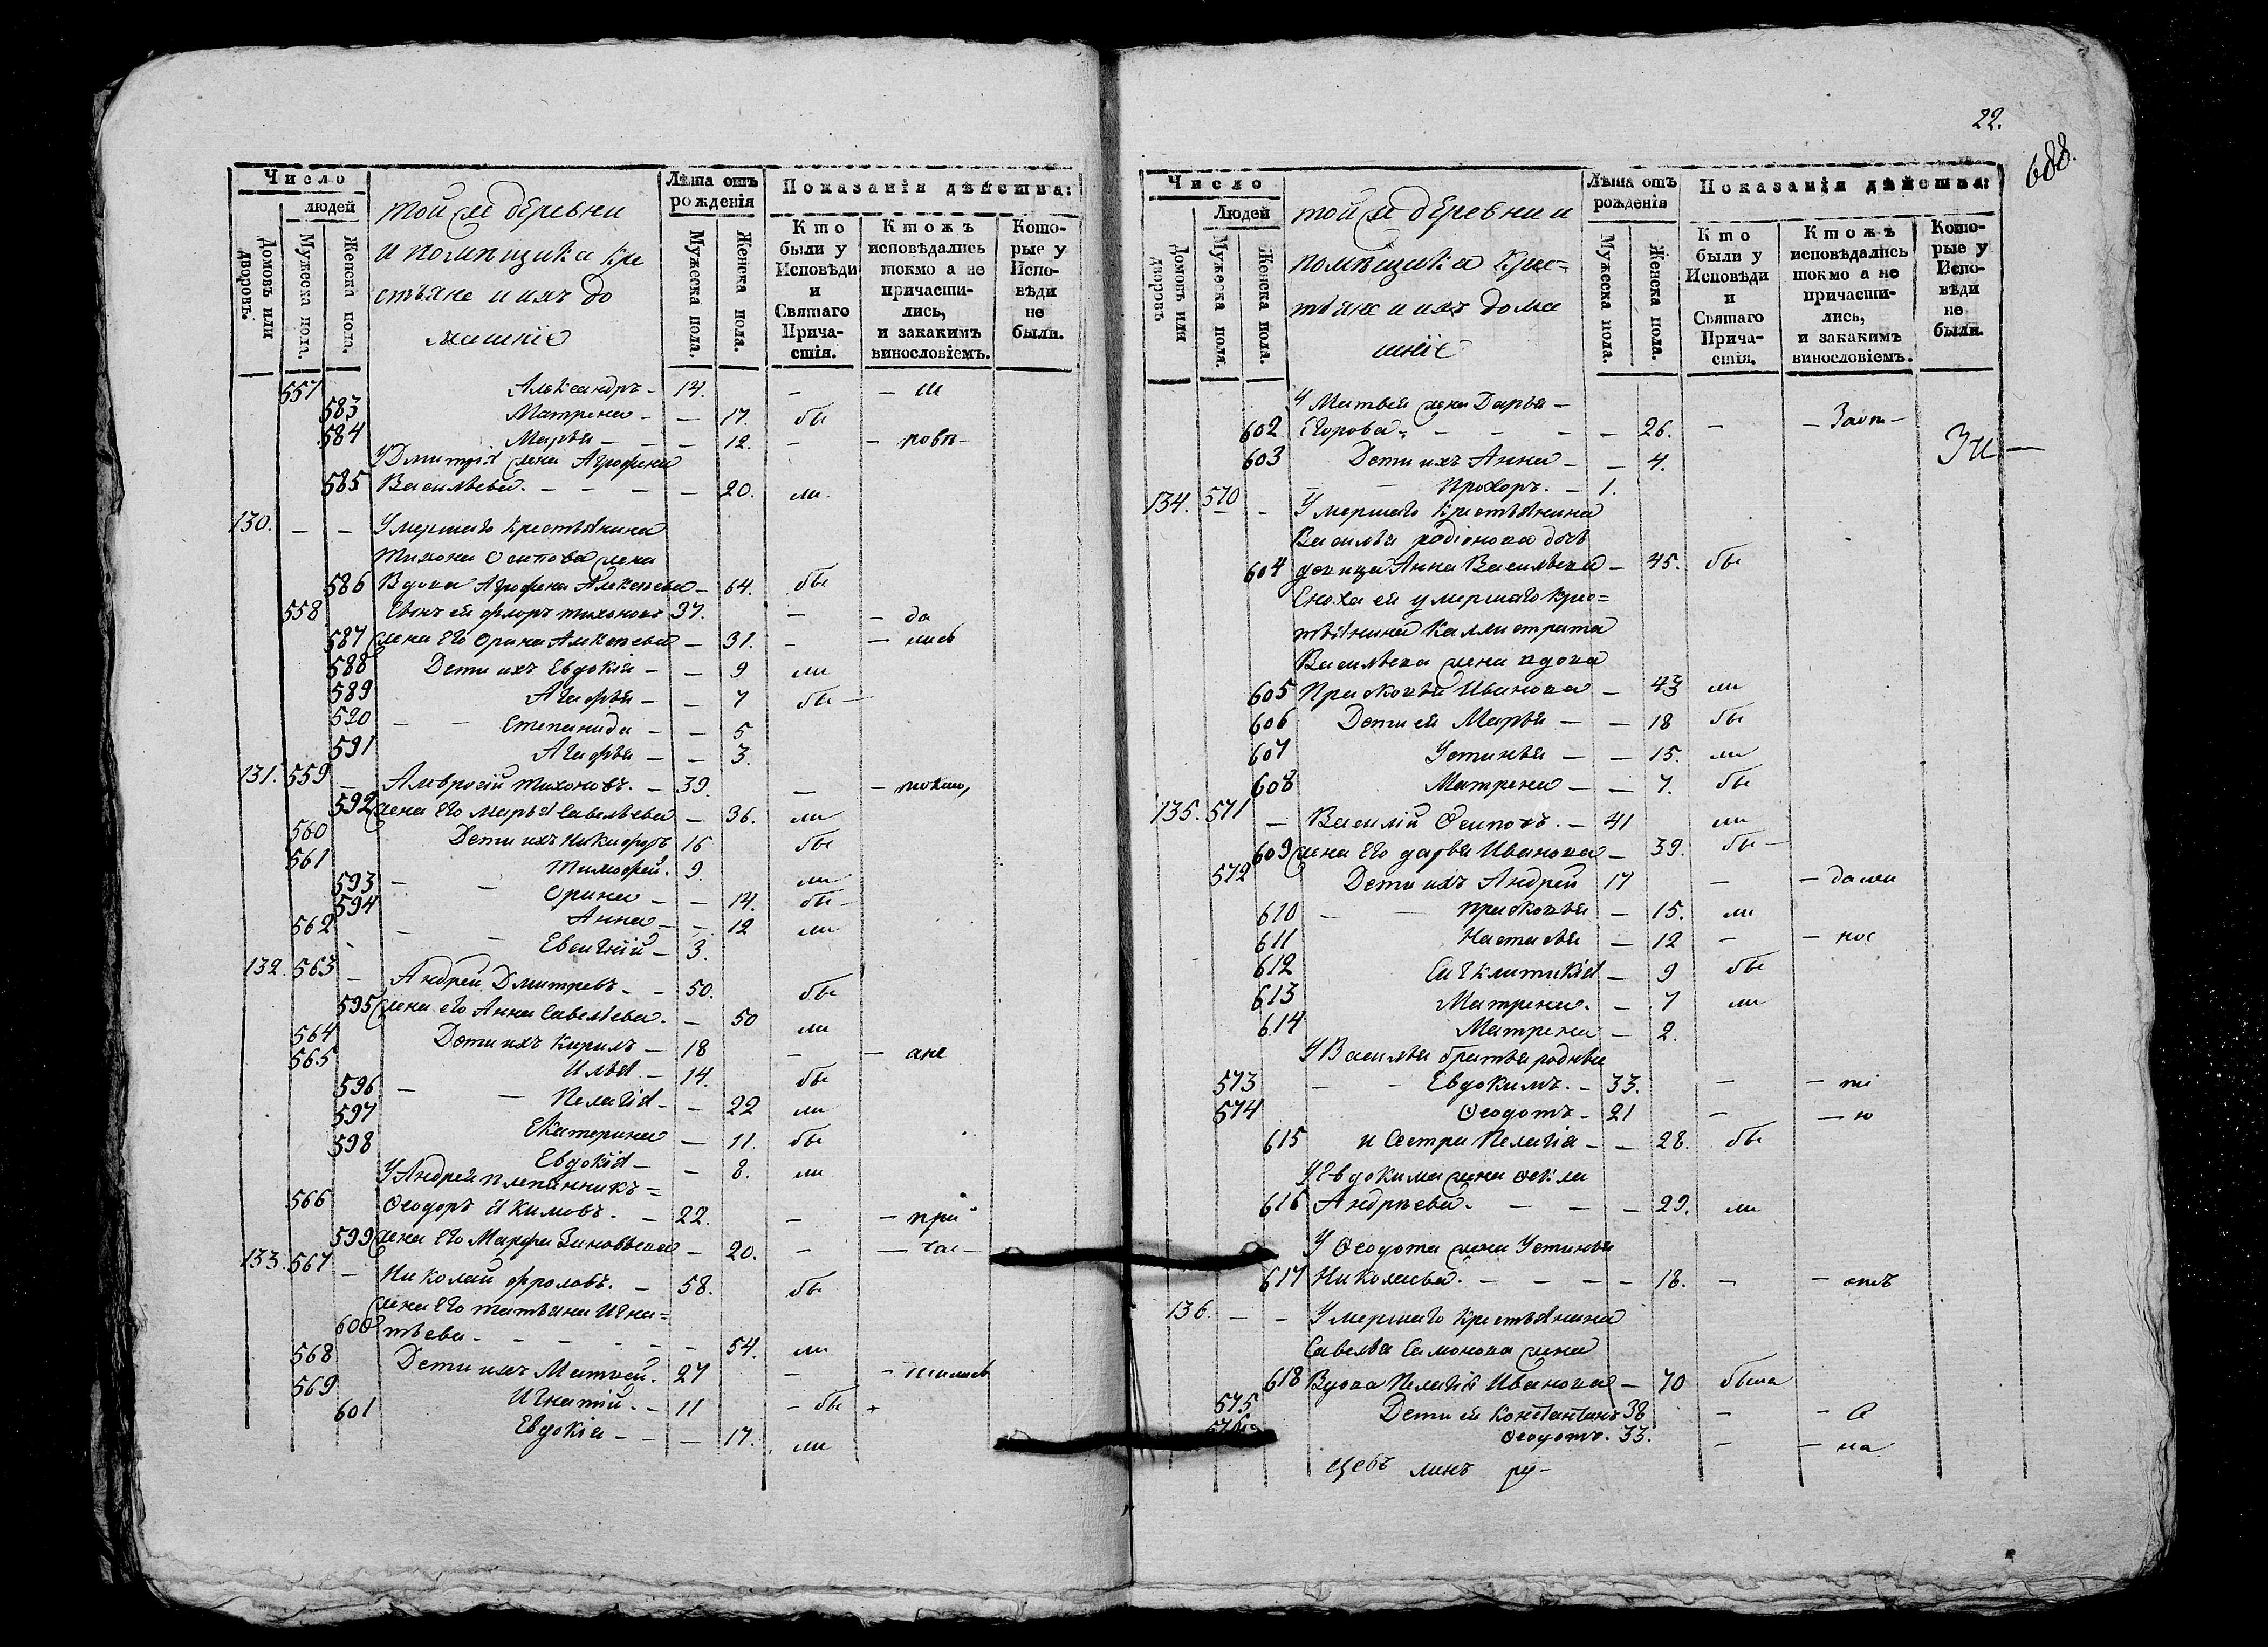 Число
людей
Домовъ или дворовъ.
Мужеска пола.
Женска пола.
той же деревни
и помѣщика кре
стьяне и ихъ до
машніе
Лѣта отъ рожденія
Мужеска пола.
Женска пола.
Показанія дѣйства:
Кто были у Исповѣди и Святаго Прича-стія.
Ктожъ исповѣдались токмо а не причасти-лись, и закакимъ винословіемъ.
Кото-рые у Испо-вѣди не были.
557 Александръ – 14. – – ш
583 Матрена – – 17. бы
584 Марья – – – 12. – – повѣ –
У Дмитрія жена Агрофена
585 Васильева. – – – – 20. ли
130. – – Умершаго крестьянина
Тихона Осипова жена
586 Вдова Агрофена Алексѣева – 64. бы
558 Сынъ ей Флоръ Тихоновъ 37. – – да
587 жена его Орина Алексѣева – 31. – – лись
588 Дети ихъ Евдокія – – 9 ли
589 Агафья – – 7 бы –
590 – – Степанида – – 5
591 Агафья – – 3.
131. 559 – Амвросій Тихоновъ. – 39. – – токмо,
592 жена его Марья Савельева – 36. ли
560 Дети ихъ Никифоръ 16 бы
561 Тимофей. 9. ли
593 – – Орина – – 14. бы –
594 Анна – – 12 ли
562 – – Евсигній – 3.
132. 563 – Андрей Дмитревъ – – 50. бы
595 жена его Анна Савельева. – 50 ли
564 Дети ихъ Кирилъ – 18 – – ане
565 Илья – 14. бы
596 – – Пелагія – – 22 ли
597 Екатерина – 11. бы
598 Евдокія – – 8. ли
У Андрея племянникъ =
566 Ѳеодоръ Якимовъ. – 22. – – при
599 жена его Марфа Зиновьева – 20. – – час –
133. 567 – Николай Фроловъ. – 58. бы
жена его Татьяна Игна=
600 тьева – – – – – 54. ли
568 Дети ихъ Матвей. 27 – – тилась
569 Игнатій. – 11 – бы
601 Евдокія – – – 17. ли
22.
688.
Число
Людей
Домовъ или дворовъ
Мужеска пола.
Женска пола.
той же деревни и
помѣщика крес=
тьяне и ихъ дома
шніе
Лѣта отъ рожденія
Мужеска пола.
Женска пола.
Показанія дѣйства:
Кто были у Исповѣди и Святаго Прича-стія.
Ктожъ исповѣдались токмо а не причасти-лись, и закакимъ винословіемъ.
Кото-рые у Испо-вѣди не были.
У Матвея жена Дарья –
602 Егорова. – – – – 26. – – Заот –
603 Дети ихъ Анна – – 4.
– – Прохоръ. – 1.
134. 570 – Умершаго крестьянина
Василья Родіонова дочь
604 девица Анна Васильева – 45. бы
Сноха ей умершаго крес=
тьянина Каллистрата
Васильева жена вдова
605 Прасковья Иванова – 43 ли
606 Дети ей Марья – – 18 бы
607 Устинья – – 15. ли
608 Матрена – – 7. бы
135. 571 – Василій Осиповъ. – 41 ли
609 жена его Дарья Иванова – 39. бы –
572 Дети ихъ Андрей 17 – – даллн
610 – – Прасковья – 15. ли
611 Настасья – 12 – – нос
612 Сигклитикія – 9 бы
613 Матрена. – 7 ли
614 Матрена – 2.
У Василья братья родные
573 – – Евдокимъ. – 33. – – ті
574 Ѳеодотъ – 21 – – ю
615 и Сестра Пелагія – – 28. бы
У Евдокима жена Ѳекла
616 Андрѣева. – – – 29. ли
У Ѳеодота жена Устинья
617 Николаева. – – – – 18. – – отъ
136. – – Умершаго крестьянина
Савелья Самонова жена
618 Вдова Пелагія Иванова – 70 была
575 Дети ей Константинъ 38 – – С
576 Ѳеодотъ. 33. – – на
линъ ру –